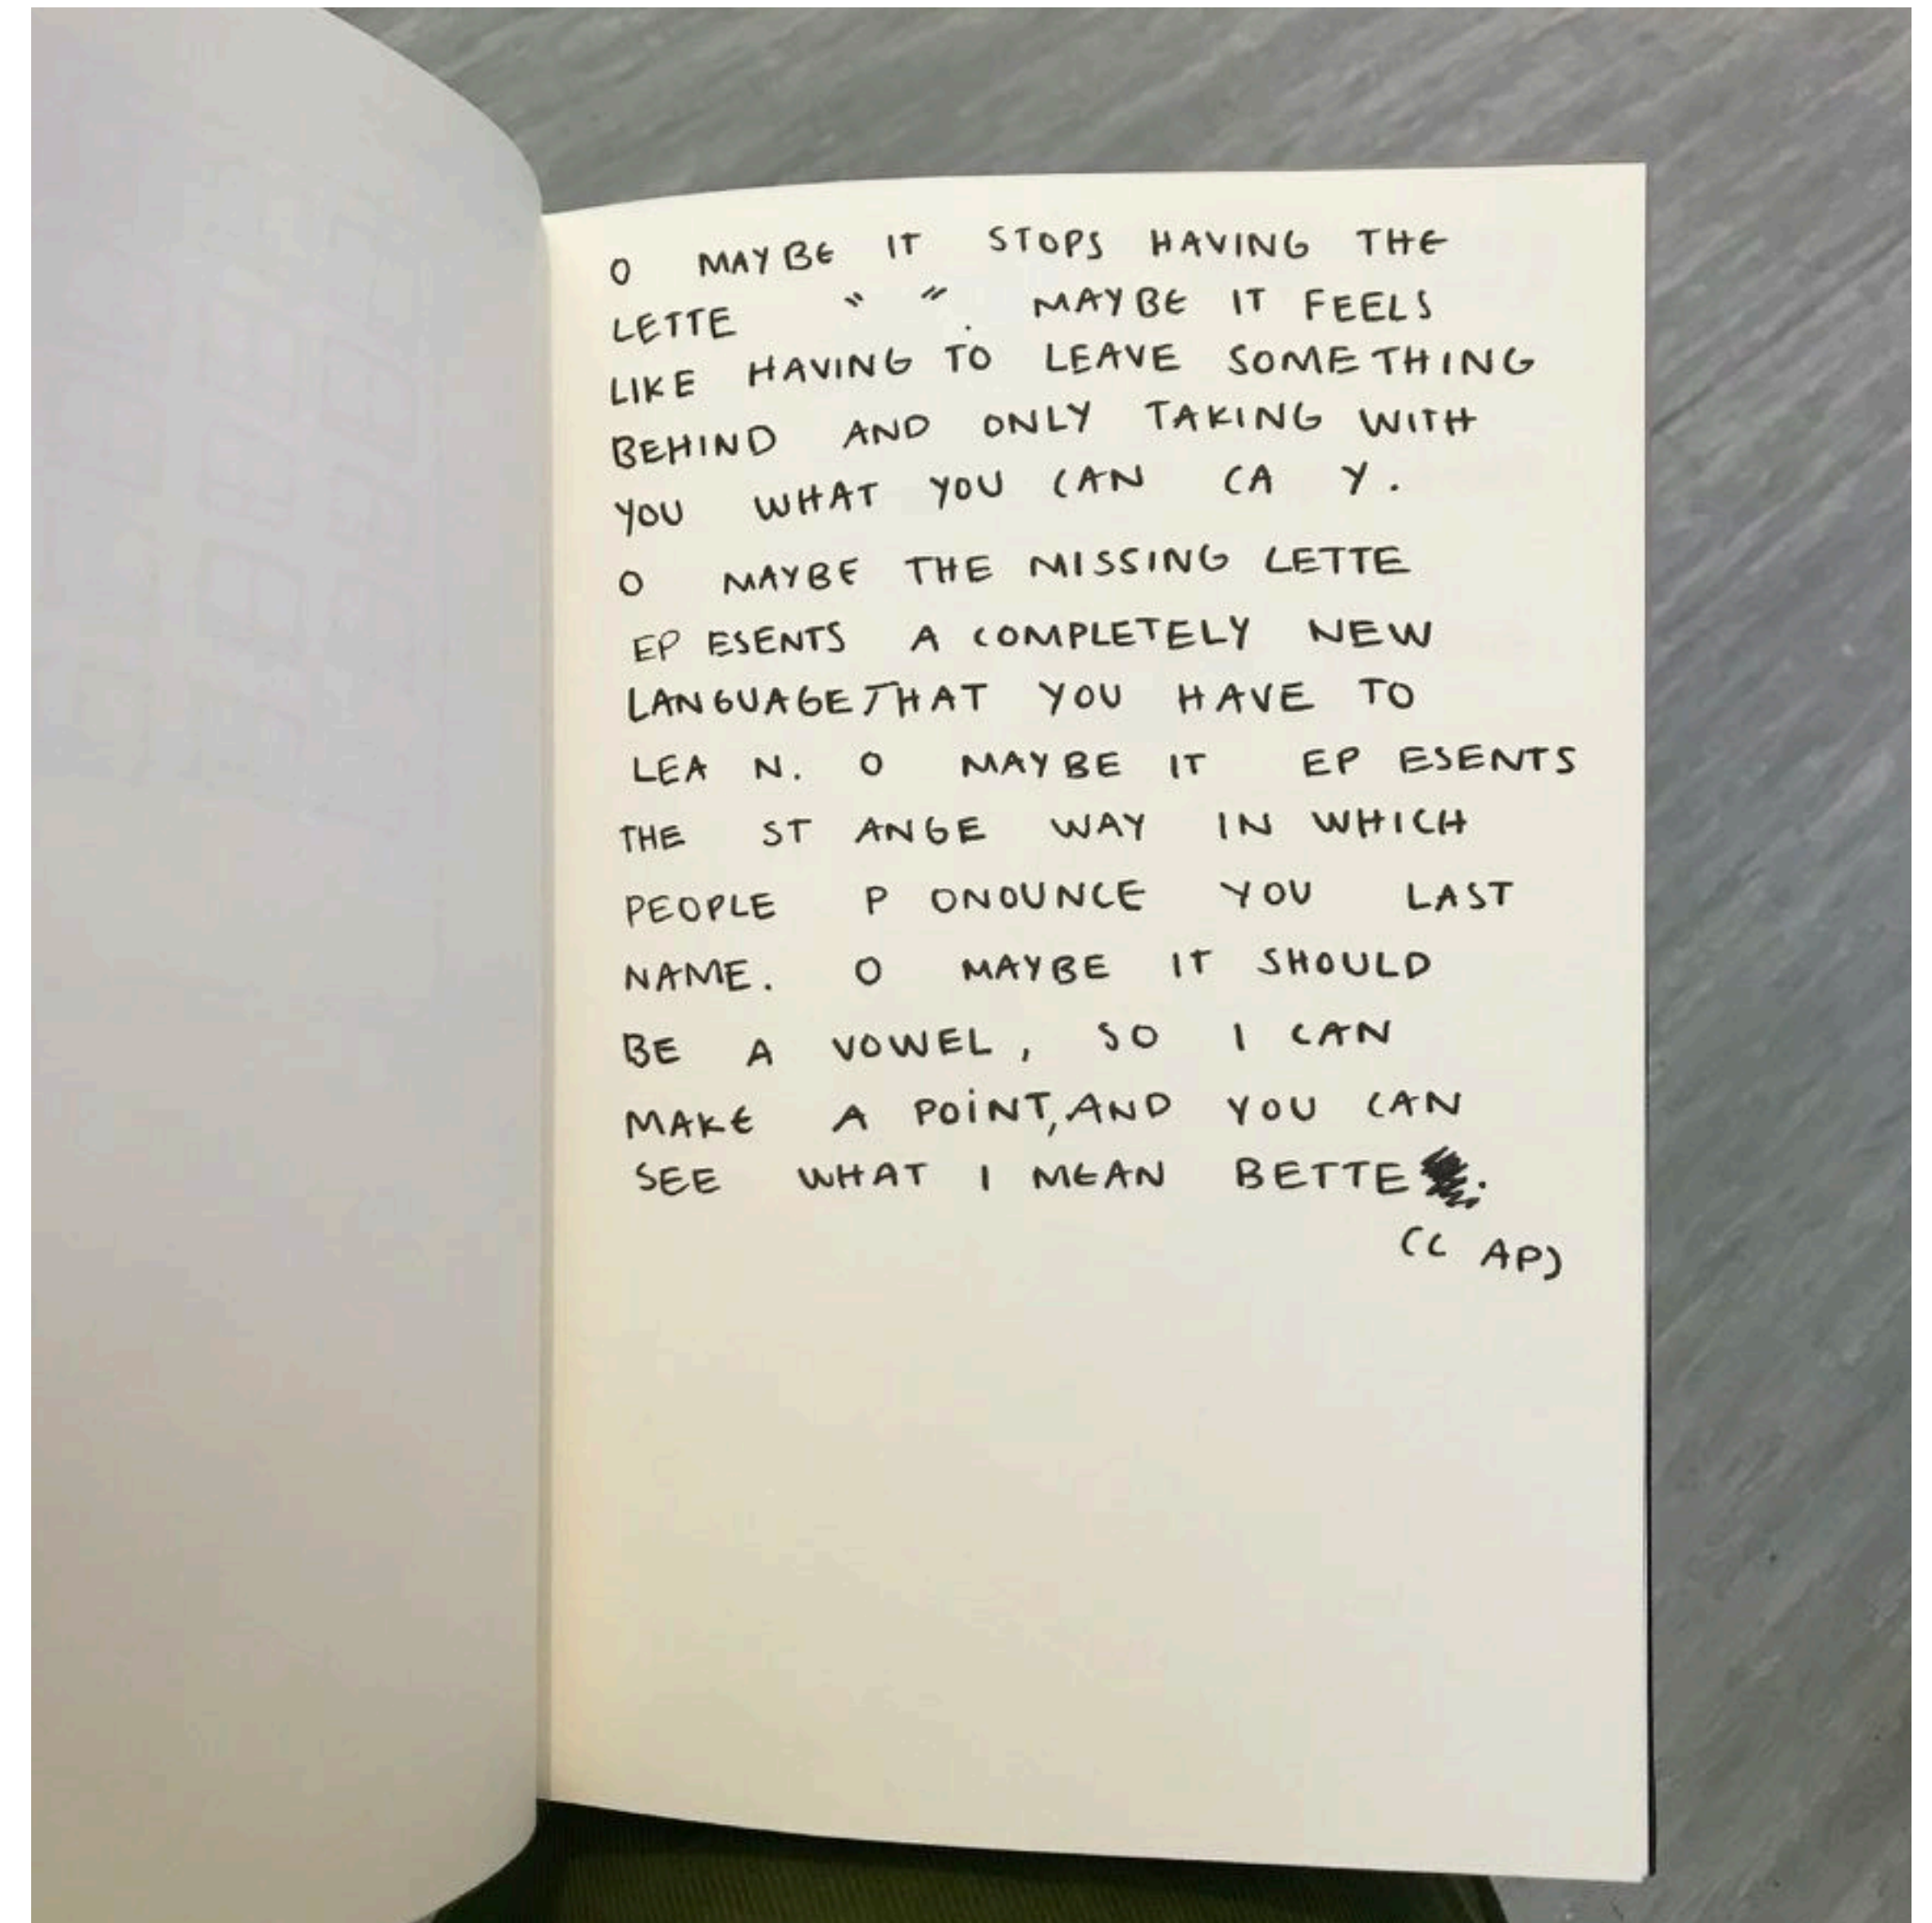 O MAYBE IT STOPS HAVING THE
LETTE " ". MAYBE IT FEELS
LIKE HAVING TO LEAVE SOMETHING
BEHIND AND ONLY TAKING WITH
YOU WHAT YOU CAN CA Y.
O MAYBE THE MISSING LETTE
EP ESENTS A COMPLETELY NEW
LANGUAGE THAT YOU HAVE TO
LEA N. O MAYBE IT EP ESENTS
THE ST ANGE WAY IN WHICH
PEOPLE P ONOUNCE YOU LAST
NAME. O MAYBE IT SHOULD
BE A VOWEL, SO I CAN
MAKE A POiNT, AND YOU CAN
SEE WHAT I MEAN BETTE .
(C AP)